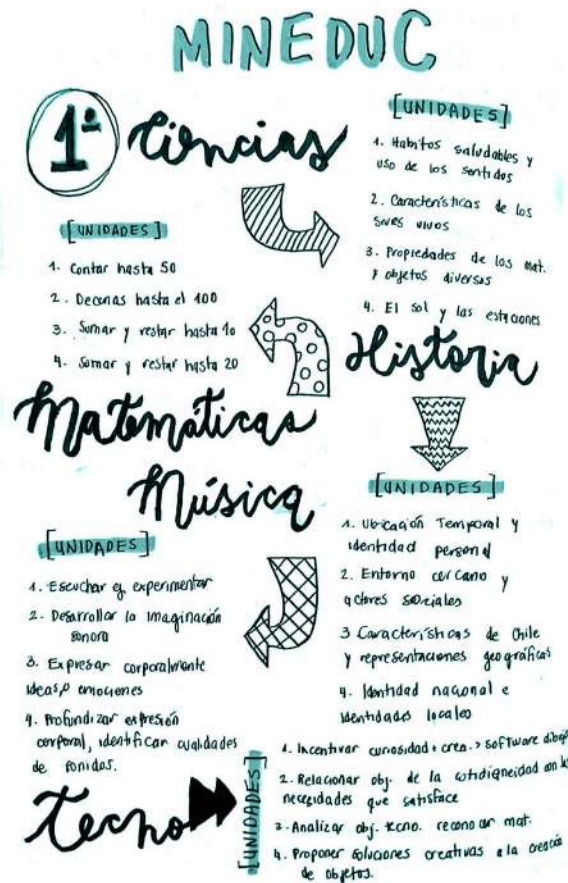 MINEDUC
1º Ciencias
[UNIDADES]
1. Habitos saludables y
uso de los sentidos
2. Características de los
seres vivos
3. Propiedades de los mat.
y objetos diversos
4. El sol y las estaciones
[UNIDADES]
1. Contar hasta 50
2. Decenas hasta el 100
3. Sumar y restar hasta 10
4. Sumar y restar hasta 20
Matemáticas
Historia
[UNIDADES]
1. Ubicación Temporal y
identidad personal
2. Entorno cercano y
actores sociales
3 Características de Chile
y representaciones geográficas
4. Identidad nacional e
identidades locales
Música
[UNIDADES]
1. Escuchar y experimentar
2. Desarrollar la imaginación
sonora
3. Expresar corporalmente
ideas o emociones
4. Profundizar expresión
corporal, identificar cualidades
de sonidos.
Tecno
[UNIDADES]
1. Incentivar curiosidad + crea. > software dibujo
2. Relacionar obj. de la cotidianeidad con las
necesidades que satisface
3. Analizar obj. tecno. reconocer mat.
4. Proponer soluciones creativas a la creación
de objetos.